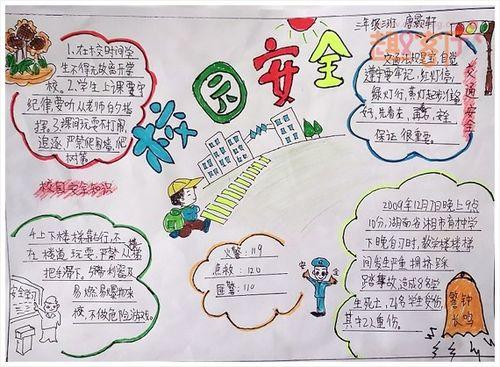 三年级二班
校园安全
1、在校时间学
生不得无故离开学
校。2、学生上课要守
纪律,要听从老师的指
挥。3、课间玩耍不打闹,
追逐,严禁爬围墙,爬
树等。
校园安全知识
交通法规星星,自觉
遵守要牢记,红灯停,
绿灯行,黄灯
保证很重要。
交通安全
4、上下楼梯靠右行,不
在楼道玩耍,严禁从
把手滑下,
易燃易爆物来
校,不做危险游戏。
安全学习
火警:119
急救:120
匪警:110
2009年12月7日晚上9点
10分,湖南省湘乡市育才中学
下晚自习时,教学楼楼梯
间发生严重拥挤踩
踏事故,造成8名学
生死亡,26名学生受伤,
其中2人重伤。
警钟
长鸣